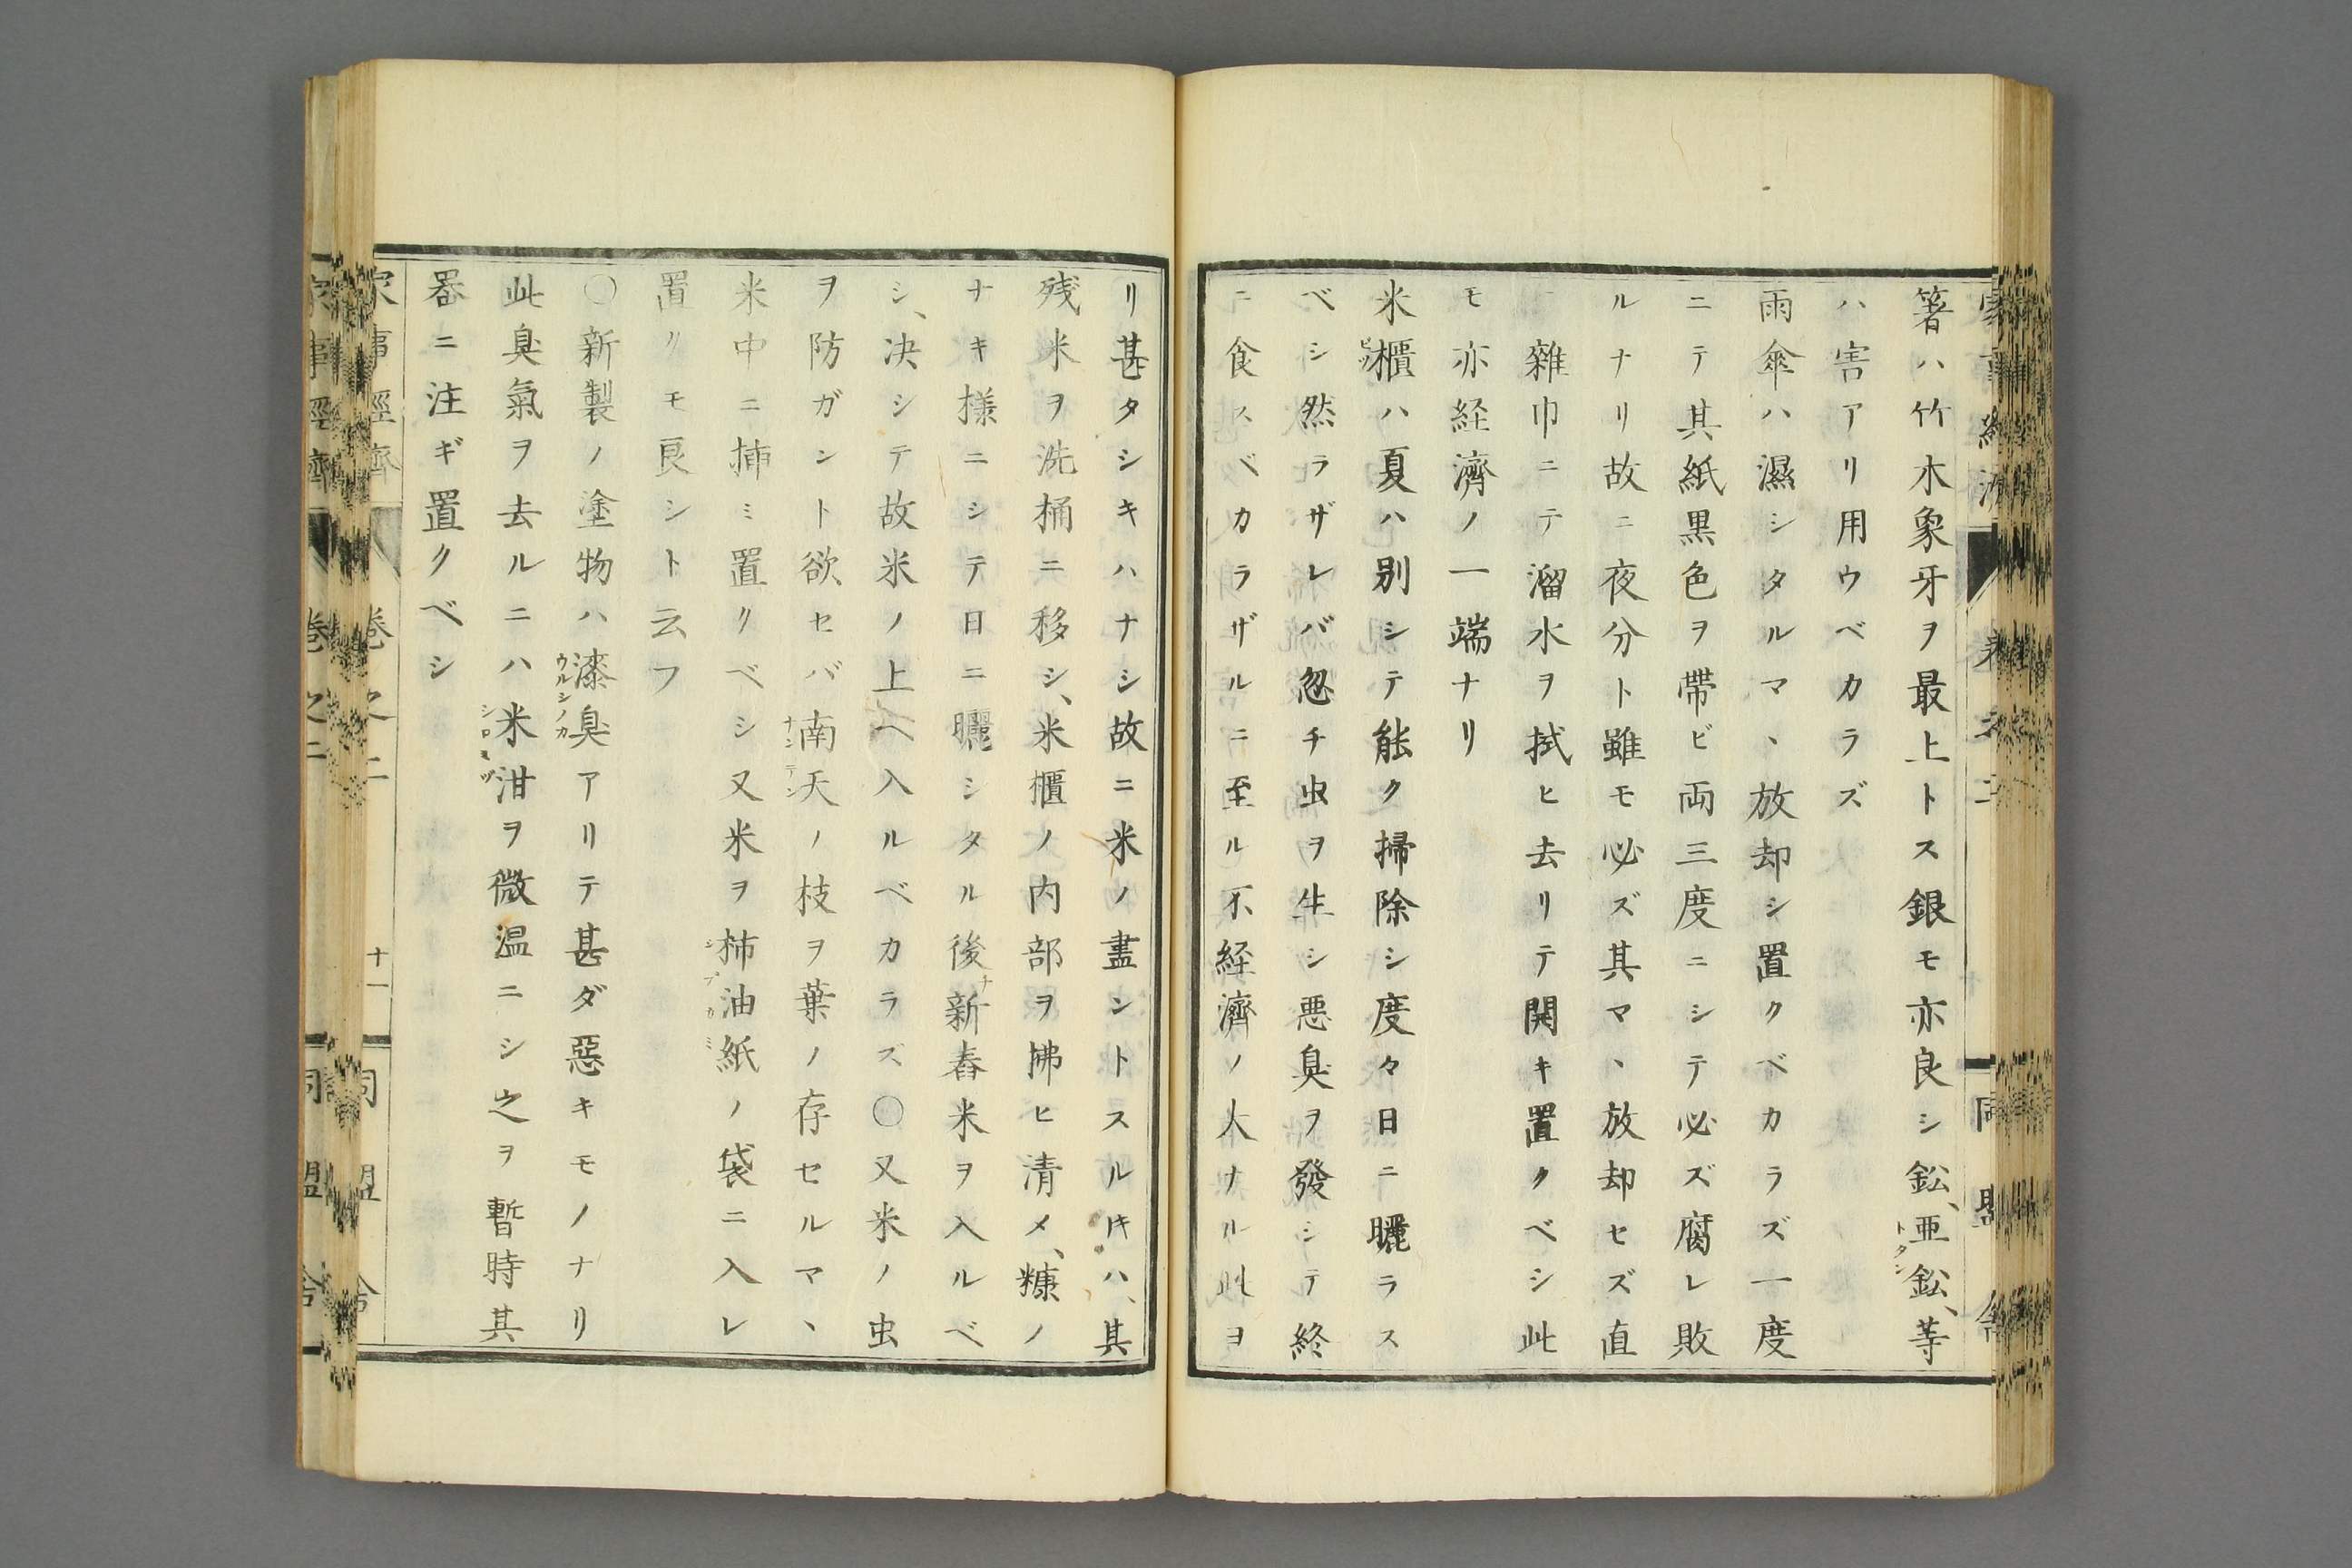 箸ハ竹木象牙ヲ最上トス銀モ亦良シ鉛、亜鉛、等
トタン
ハ害アリ用ウベカラズ
雨傘ハ濕シタルマヽ放却シ置クベカラズ一度
ニテ其紙黒色ヲ帶ビ両三度ニシテ必ズ腐レ敗
ルナリ故ニ夜分ト雖モ必ズ其マヽ放却セズ直
ニ雜巾ニテ溜水ヲ拭ヒ去リテ開キ置クベシ此
モ亦経濟ノ一端ナリ
米櫃ハ夏ハ別シテ能ク掃除シ度々日ニ曬ラス
ビツ
ベシ然ラザレバ忽チ虫ヲ生シ悪臭ヲ發シテ終
ニ食スベカラザルニ至ル不経濟ノ大ナル此ヨ
リ甚タシキハナシ故ニ米ノ盡ントスルキハ、其
残米ヲ洗桶ニ移シ、米櫃ノ内部ヲ拂ヒ清メ、糠ノ
ナキ様ニシテ日ニ曬シタル後新舂米ヲ入ルベ
ナ
シ、决シテ故米ノ上ヘ入ルベカラズ〇又米ノ虫
ヲ防ガント欲セバ南天ノ枝ヲ葉ノ存セルマヽ
ナンテン
米中ニ挿ミ置クベシ又米ヲ柿油紙ノ袋ニ入レ
シブカミ
置クモ良シト云フ
〇新製ノ塗物ハ漆臭アリテ甚ダ惡キモノナリ
ウルシノカ
此臭氣ヲ去ルニハ米泔ヲ微温ニシ之ヲ暫時其
シロミヅ
器ニ注ギ置クベシ
家事經濟 卷之二 十一 同盟舎